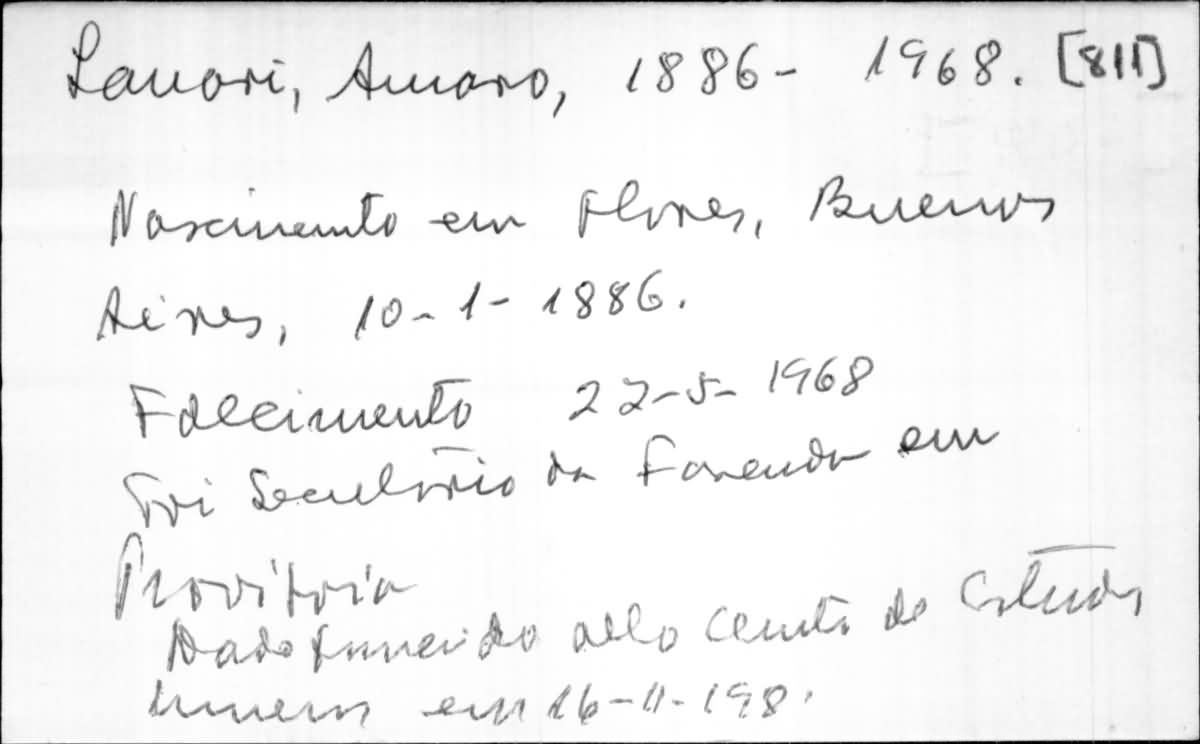 Lanari, Amaro, 1886- 1968. [811]
Nascimento em Flores, Buenos
Aires, 10-1-1886.
Falecimento 22-5-1968
Foi Secretário da Fazenda em
Provisória
Dado fornecido pelo Centro de Estudos
em 16-11-198.